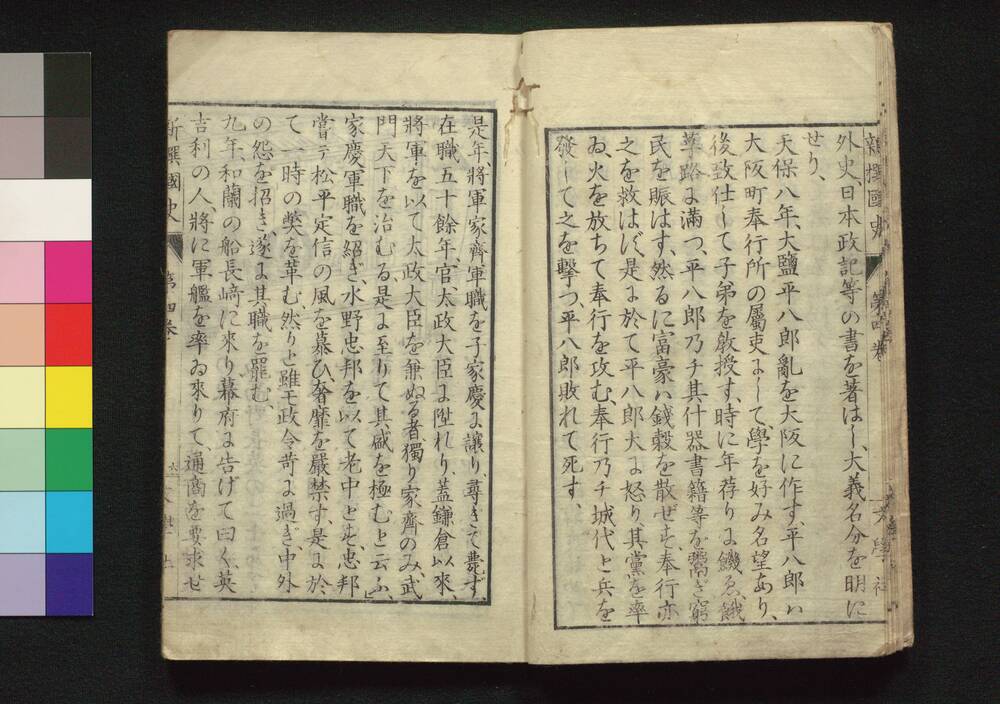 外史、日本政記等の書を著はし、大義名分を明に
せり、
天保八年、大鹽平八郎亂を大阪に作す、平八郎ハ
大阪町奉行所の屬吏にして、學を好み名望あり、
後致仕して子弟を敎授す、時に年荐りに饑ゑ、餓
莩路に滿つ、平八郎乃チ其什器書籍等を鬻ぎ窮
民を賑はす、然るに富豪ハ錢穀を散ぜず、奉行亦
之を救はず、是に於て平八郎大に怒り、其黨を率
ゐ、火を放ちて奉行を攻む、奉行乃チ城代と兵を
發して之を擊つ、平八郎敗れて死す、
是年、將軍家齊軍職を子家慶に讓り、尋ぎて薨ず、
在職、五十餘年、官、太政大臣に陞れり、蓋鎌倉以來、
將軍を以て太政大臣を兼ぬる者、獨り家齊のみ、武
門天下を治むる、是に至りて其盛を極むと云ふ、
家慶軍職を紹ぎ、水野忠邦を以て老中とす、忠邦
嘗テ松平定信の風を慕ひ、奢靡を嚴禁す、是に於
て一時の獘を革む、然りと雖モ政令苛に過ぎ、中外
の怨を招き、遂に其職を罷む、
九年、和蘭の船長﨑に來り幕府に告げて曰く、英
吉利の人、將に軍艦を率ゐ來りて、通商を要求せ
新撰國史
第四卷
六